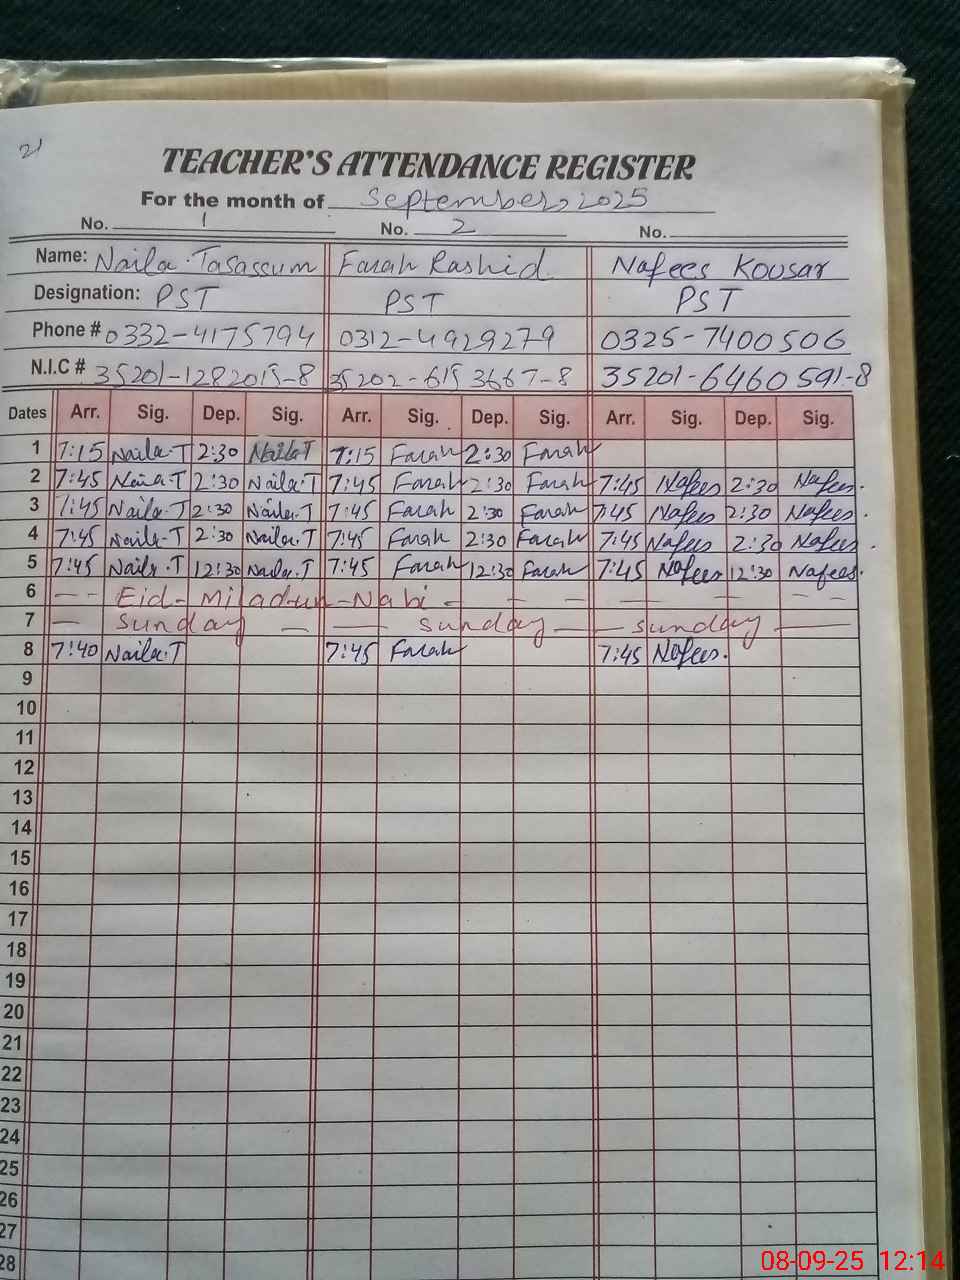 21
TEACHER'S ATTENDANCE REGISTER
For the month of September, 2025
No. 1 No. 2 No.
Name: Naila Tasassum Farah Rashid Nafees Kousar
Designation: PST PST PST
Phone # 0332-4175794 0312-4929279 0325-7400506
N.I.C # 35201-1282015-8 35202-6153667-8 35201-6460591-8
Dates Arr. Sig. Dep. Sig. Arr. Sig. Dep. Sig. Arr. Sig. Dep. Sig.
1 7:15 Naila.T 2:30 Naila T 7:15 Farah 2:30 Farah
2 7:45 Naila.T 2:30 Naila.T 7:45 Farah 2:30 Farah 7:45 Nafees 2:30 Nafees.
3 7:45 Naila.T 2:30 Naila.T 7:45 Farah 2:30 Farah 7:45 Nafees 2:30 Nafees.
4 7:45 Naila.T 2:30 Naila.T 7:45 Farah 2:30 Farah 7:45 Nafees 2:30 Nafees.
5 7:45 Naila.T 12:30 Naila.T 7:45 Farah 12:30 Farah 7:45 Nafees 12:30 Nafees.
6 - - Eid-Miladun-Nabi - - - - - - -
7 - Sunday - - Sunday - - Sunday -
8 7:40 Naila.T 7:45 Farah 7:45 Nafees.
9
10
11
12
13
14
15
16
17
18
19
20
21
22
23
24
25
26
27
28
08-09-25 12:14